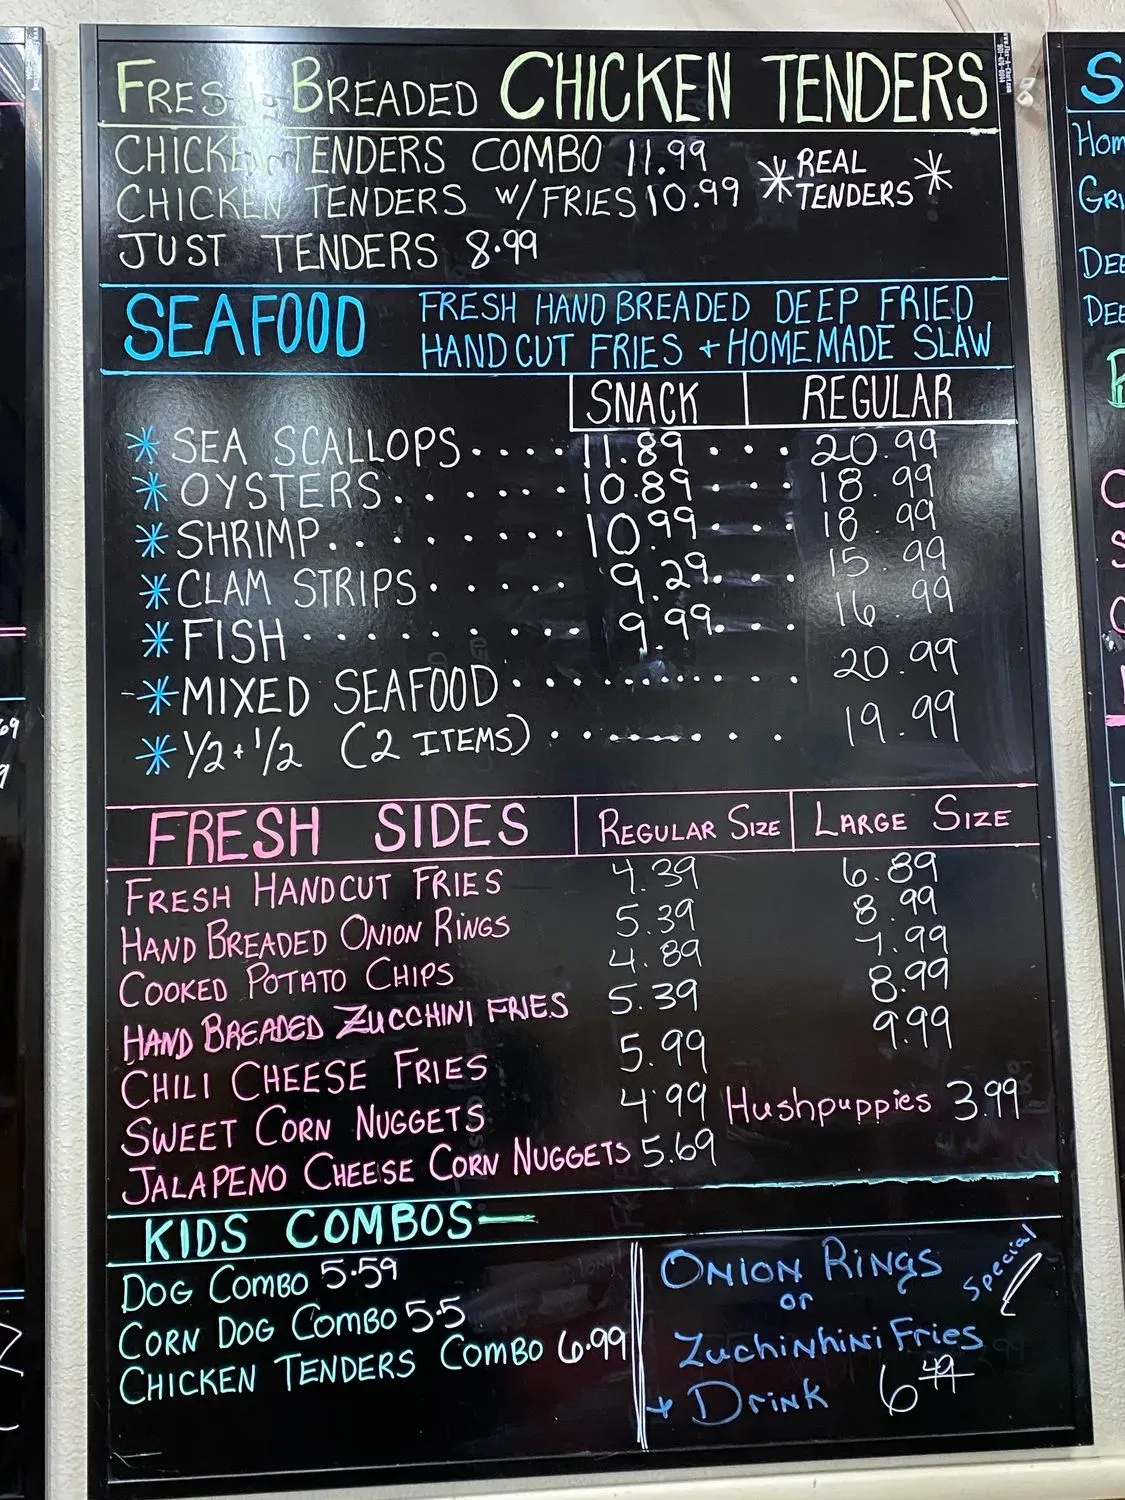 FRESH BREADED CHICKEN TENDERS
CHICKEN TENDERS COMBO 11.99
CHICKEN TENDERS W/FRIES 10.99
* REAL TENDERS *
JUST TENDERS 8.99
SEAFOOD
FRESH HAND BREADED DEEP FRIED
HANDCUT FRIES + HOMEMADE SLAW
SNACK REGULAR
* SEA SCALLOPS.... 11.89 ... 20.99
* OYSTERS....... 10.89 ... 18.99
* SHRIMP........ 10.99 ... 18.99
* CLAM STRIPS.... 9.29... 15.99
* FISH......... 9.99... 16.99
* MIXED SEAFOOD........... 20.99
* 1/2 + 1/2 (2 ITEMS)........ 19.99
FRESH SIDES REGULAR SIZE LARGE SIZE
FRESH HANDCUT FRIES 4.39 6.89
HAND BREADED ONION RINGS 5.39 8.99
COOKED POTATO CHIPS 4.89 7.99
HAND BREADED ZUCCHINI FRIES 5.39 8.99
CHILI CHEESE FRIES 5.99 9.99
SWEET CORN NUGGETS 4.99 Hushpuppies 3.99
JALAPENO CHEESE CORN NUGGETS 5.69
KIDS COMBOS
DOG COMBO 5.59
CORN DOG COMBO 5.5
CHICKEN TENDERS COMBO 6.99
ONION RINGS
Special
or
ZuchiNhiNi Fries
+ Drink 6 49
S
Hom
GRI
DEE
DEE
69
9